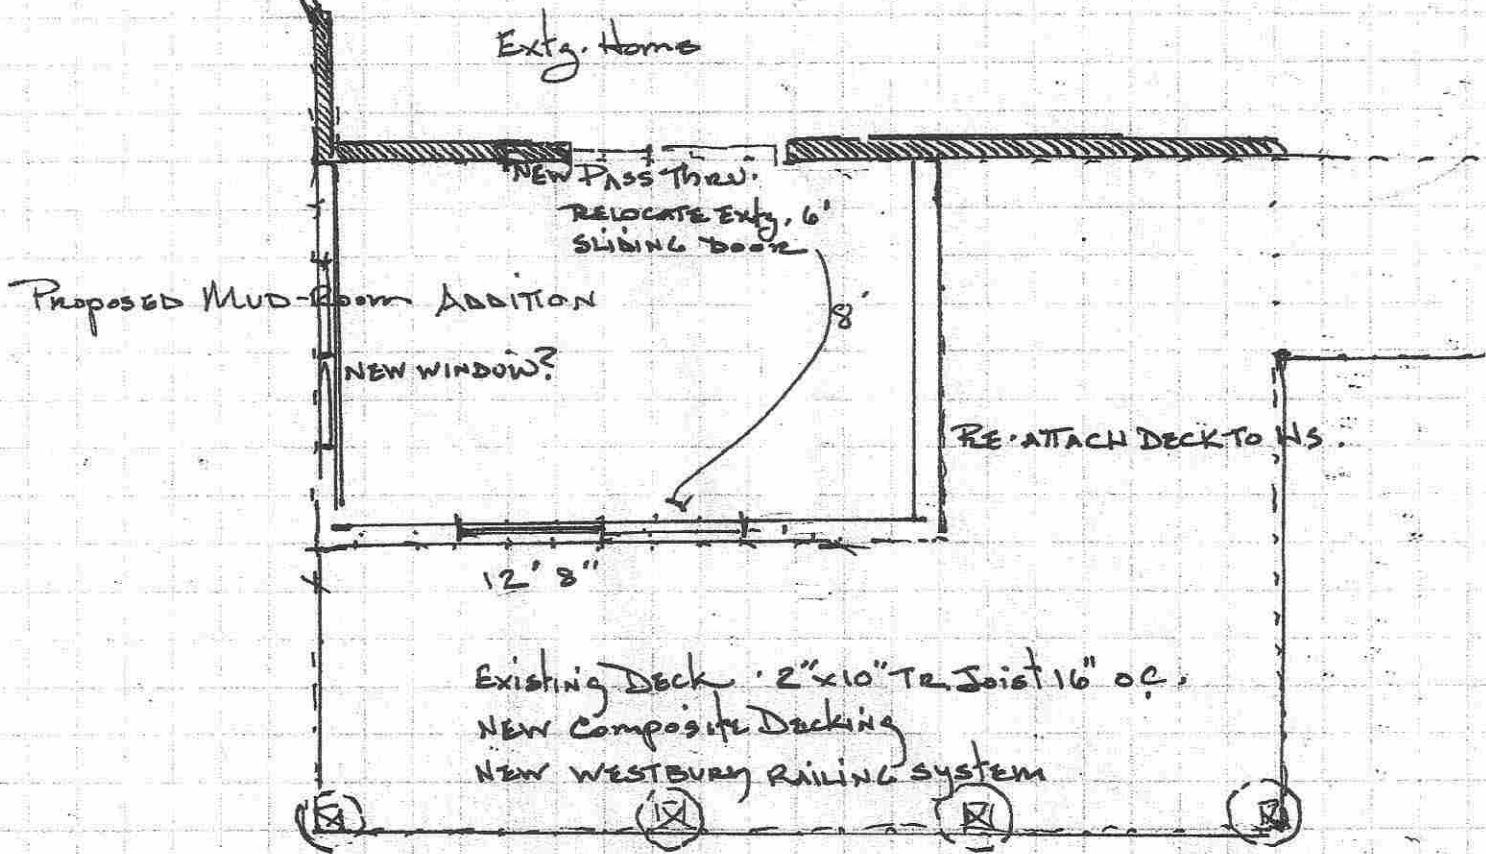 Extg. Home
NEW PASS THRU.
RELOCATE Extg. 6'
SLIDING DOOR
PROPOSED MUD-ROOM ADDITION
8'
NEW WINDOW?
RE-ATTACH DECK TO HS.
12' 8"
Existing Deck · 2"x10" TR. Joist 16" OC.
NEW Composite Decking
NEW WESTBURY RAILING System